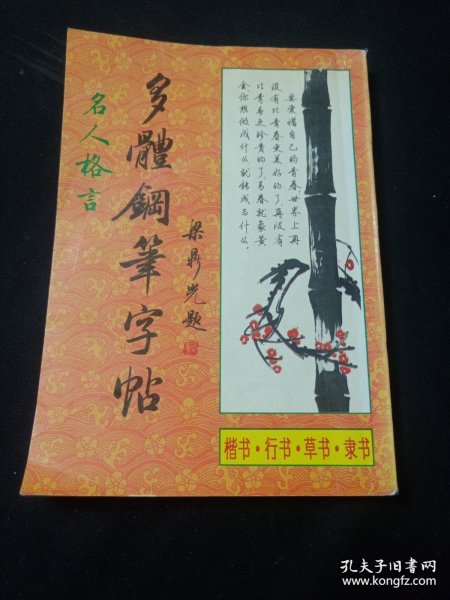 名人格言
多體鋼筆字帖
梁鼎光题
要爱惜自己的青春世界上再
没有比青春更美好的了，再没有
比青春更珍贵的了，青春就象黄
金你想做成什么就能成为什么。
楷书·行书·草书·隶书
孔夫子旧书网
www.kongfz.com